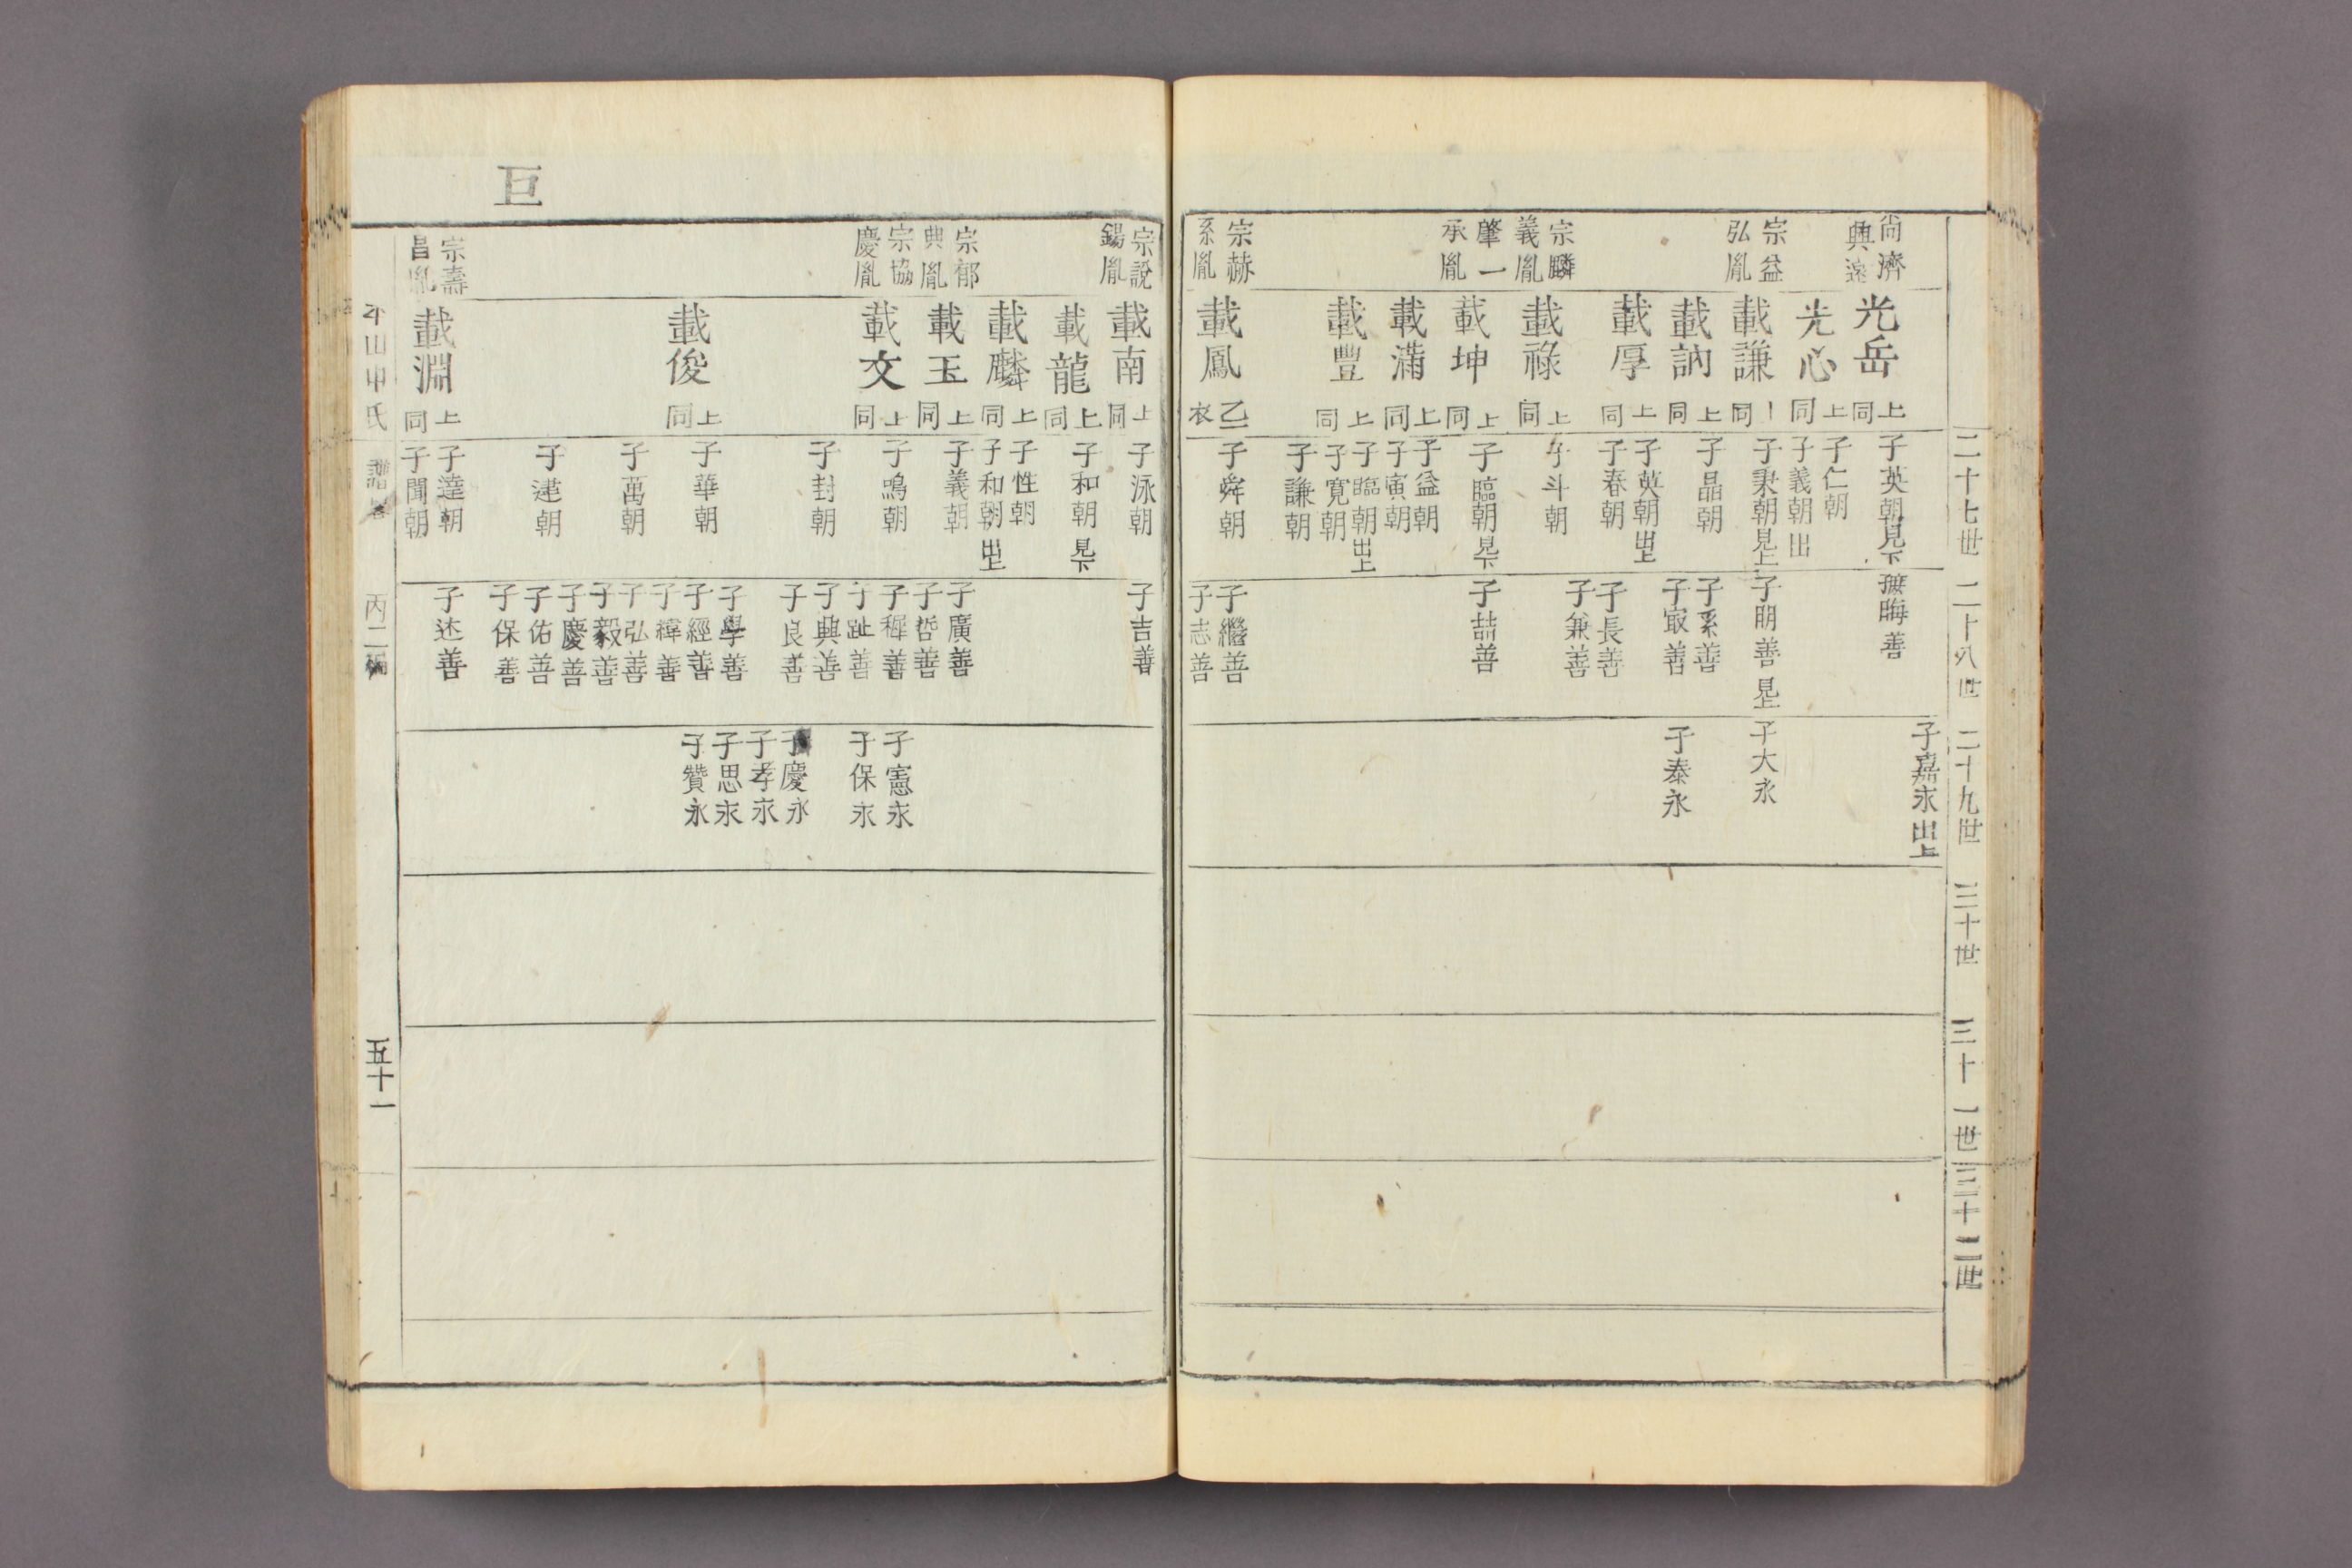 二十七世
二十八世
二十九世
三十世
三十一世
三十二世
尙濟
興遠
宗益
弘胤
宗麟
義胤
肇一
承胤
宗赫
系胤
光岳 同上
光心 同上
載謙 同上
載訥 同上
載厚 同上
載祿 同上
載坤 同上
載滿 同上
載豊 同上
載鳳 乙衣
子英朝見下
子仁朝
子義朝出
子秉朝見上
子晶朝
子英朝出上
子春朝
子斗朝
子臨朝見下
子益朝
子寅朝
子臨朝出上
子寬朝
子謙朝
子舜朝
晦善
子明善見上
子系善
子㝡善
子長善
子兼善
子喆善
子繼善
子志善
子嘉永出上
子大永
子泰永
巨
宗說
錫胤
宗郁
典胤
宗協
慶胤
宗壽
昌胤
載南 同上
載龍 同上
載麟 同上
載玉 同上
載文 同上
載俊 同上
載淵 同上
子泳朝
子和朝見下
子性朝
子和朝出上
子義朝
子鳴朝
子封朝
子華朝
子萬朝
子運朝
子達朝
子聞朝
子吉善
子廣善
子哲善
子穉善
子趾善
子興善
子良善
子學善
子經善
子禕善
子弘善
子毅善
子慶善
子佑善
子保善
子述善
子憲永
子保永
子慶永
子孝永
子思永
子贊永
平山申氏 譜卷
丙二編
五十一